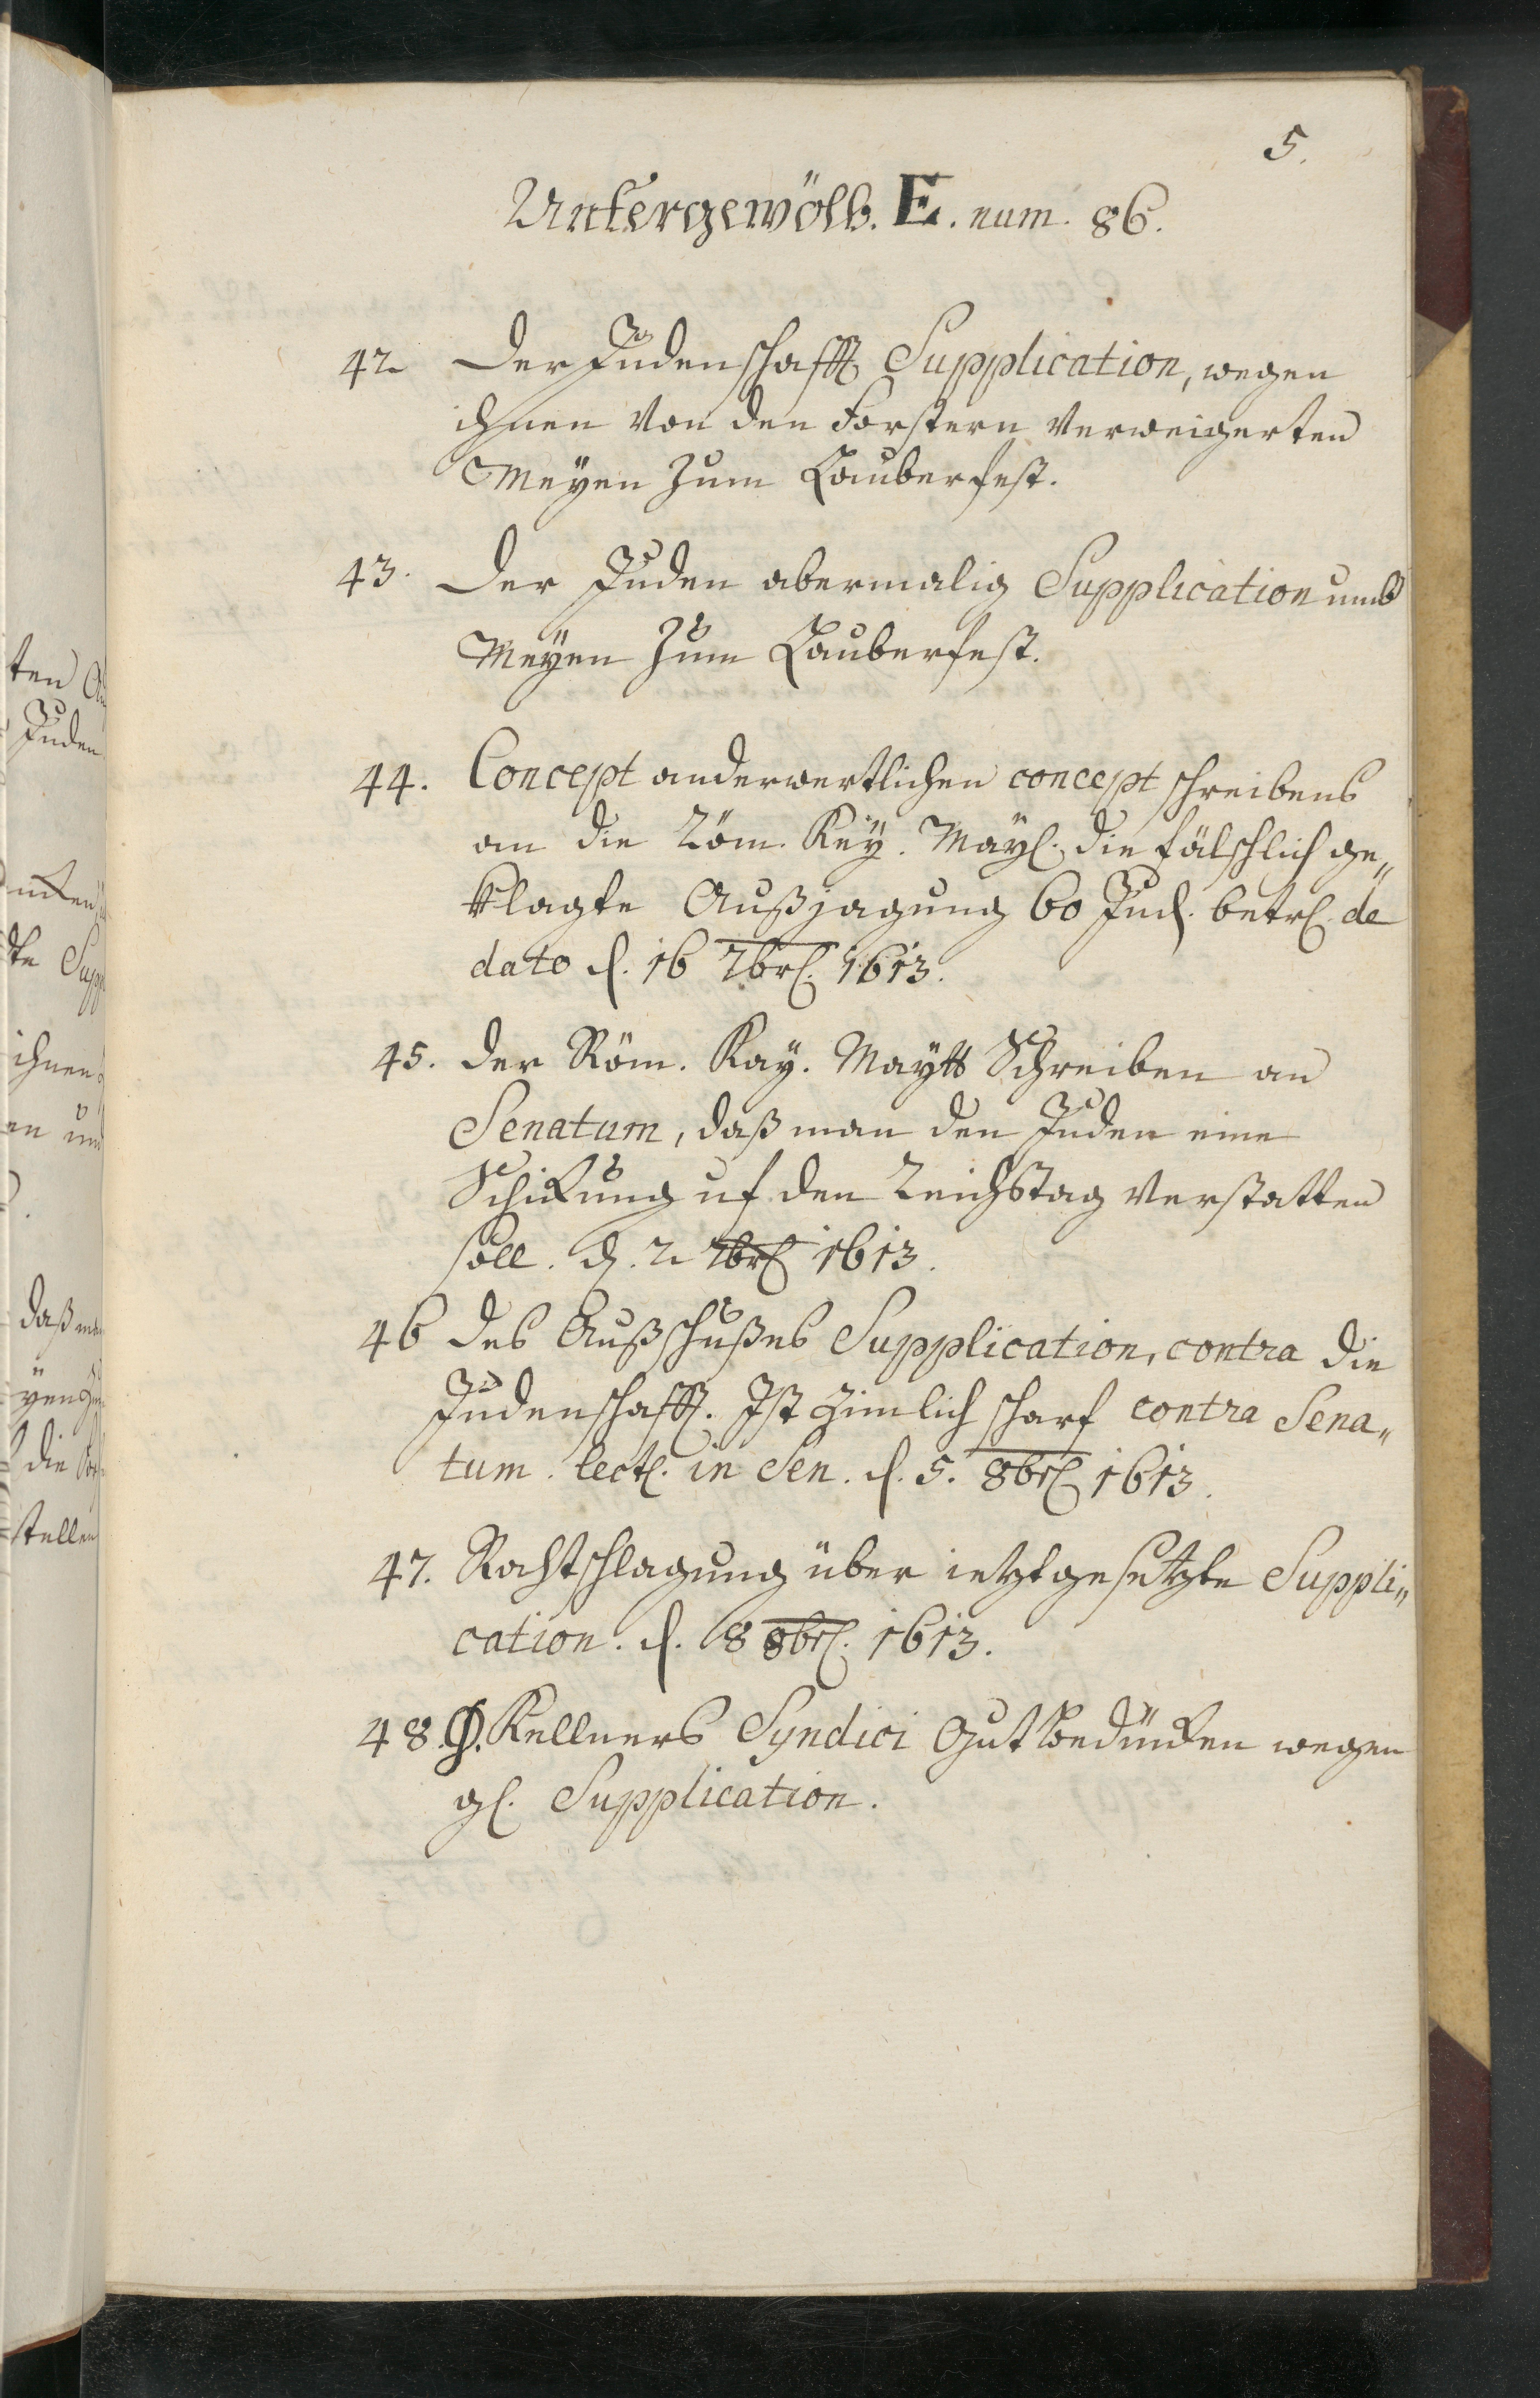 5.
Untergewölb. E. num. 86.
42. Der Judenschafft Supplication, wegen
ihnen von den Forstern verweigerten
Meyen zum Lauberfest.
43. Der Juden abermalig Supplication umb
Meyen zum Lauberfest.
44. Concept anderwertlichen concept schreibens
an die Röm. Key. May. die fälschlich ge„
klagte Außjagung 60 Jud. betr. de
dato d. 16 7br. 1613.
45. Der Röm. Kay. Maytt Schreiben an
Senatum, daß man den Juden eine
Schickung uf den Reichstag verstatten
soll. d. 2 7br 1613.
46 Des Außschußes Supplication, contra die
Judenschafft. Ist zimlich scharf contra Sena„
tum. lect. in Sen. d. 5. 8br 1613.
47. Rathschlagung über ietztgesetzte Suppli„
cation. d. 8 8br. 1613.
48. D. Kellners Syndici Gutbedüncken wegen
gl. Supplication.